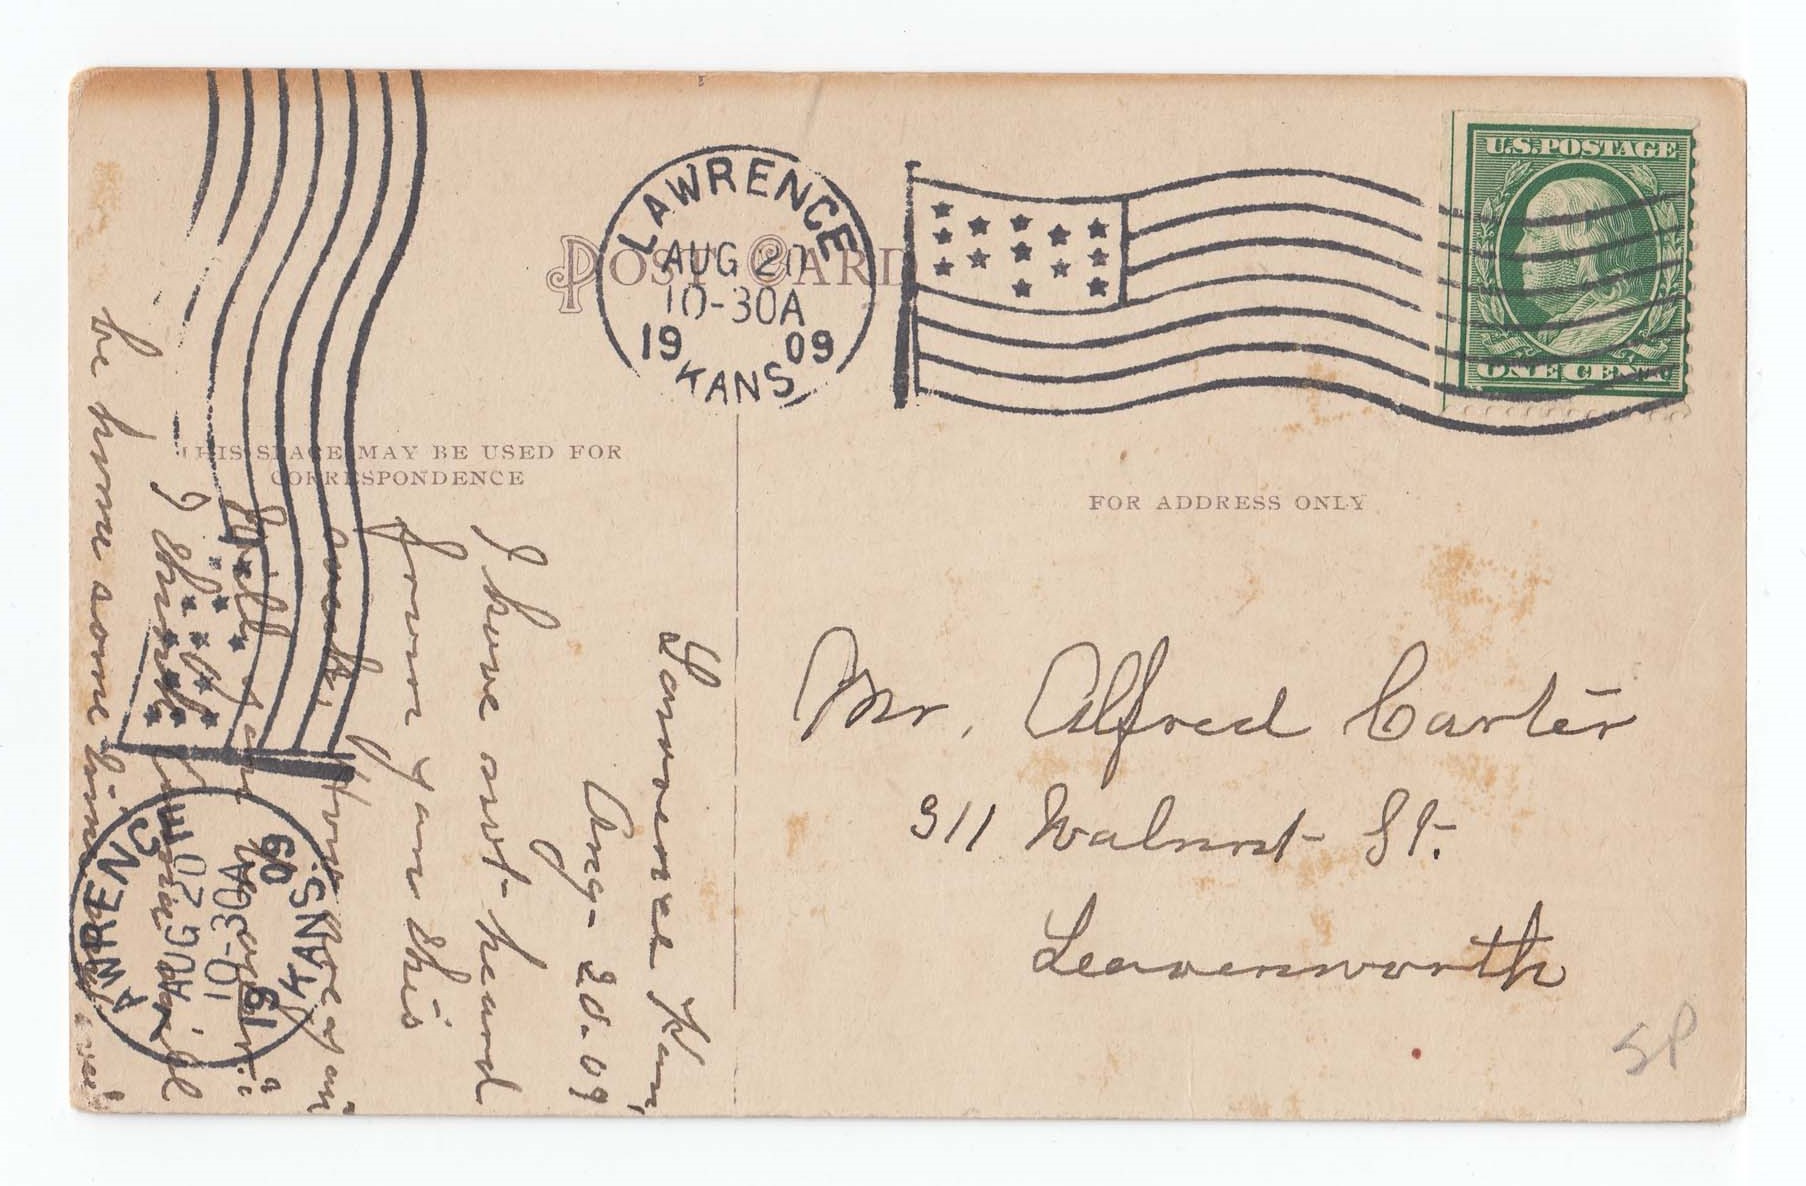 POST CARD
LAWRENCE
AUG 20
10-30A
1909
KANS
U.S. POSTAGE
ONE CENT
THIS SPACE MAY BE USED FOR
CORRESPONDENCE
FOR ADDRESS ONLY
Mr. Alfred Carter
311 Walnut St.
Leavenworth
Lawrence Kan,
Aug- 20-09
I have not heard
from you this
week, Hope
Will you
I think will
be home some time
LAWRENCE
AUG 20
10-30A
1909
KANS
SP